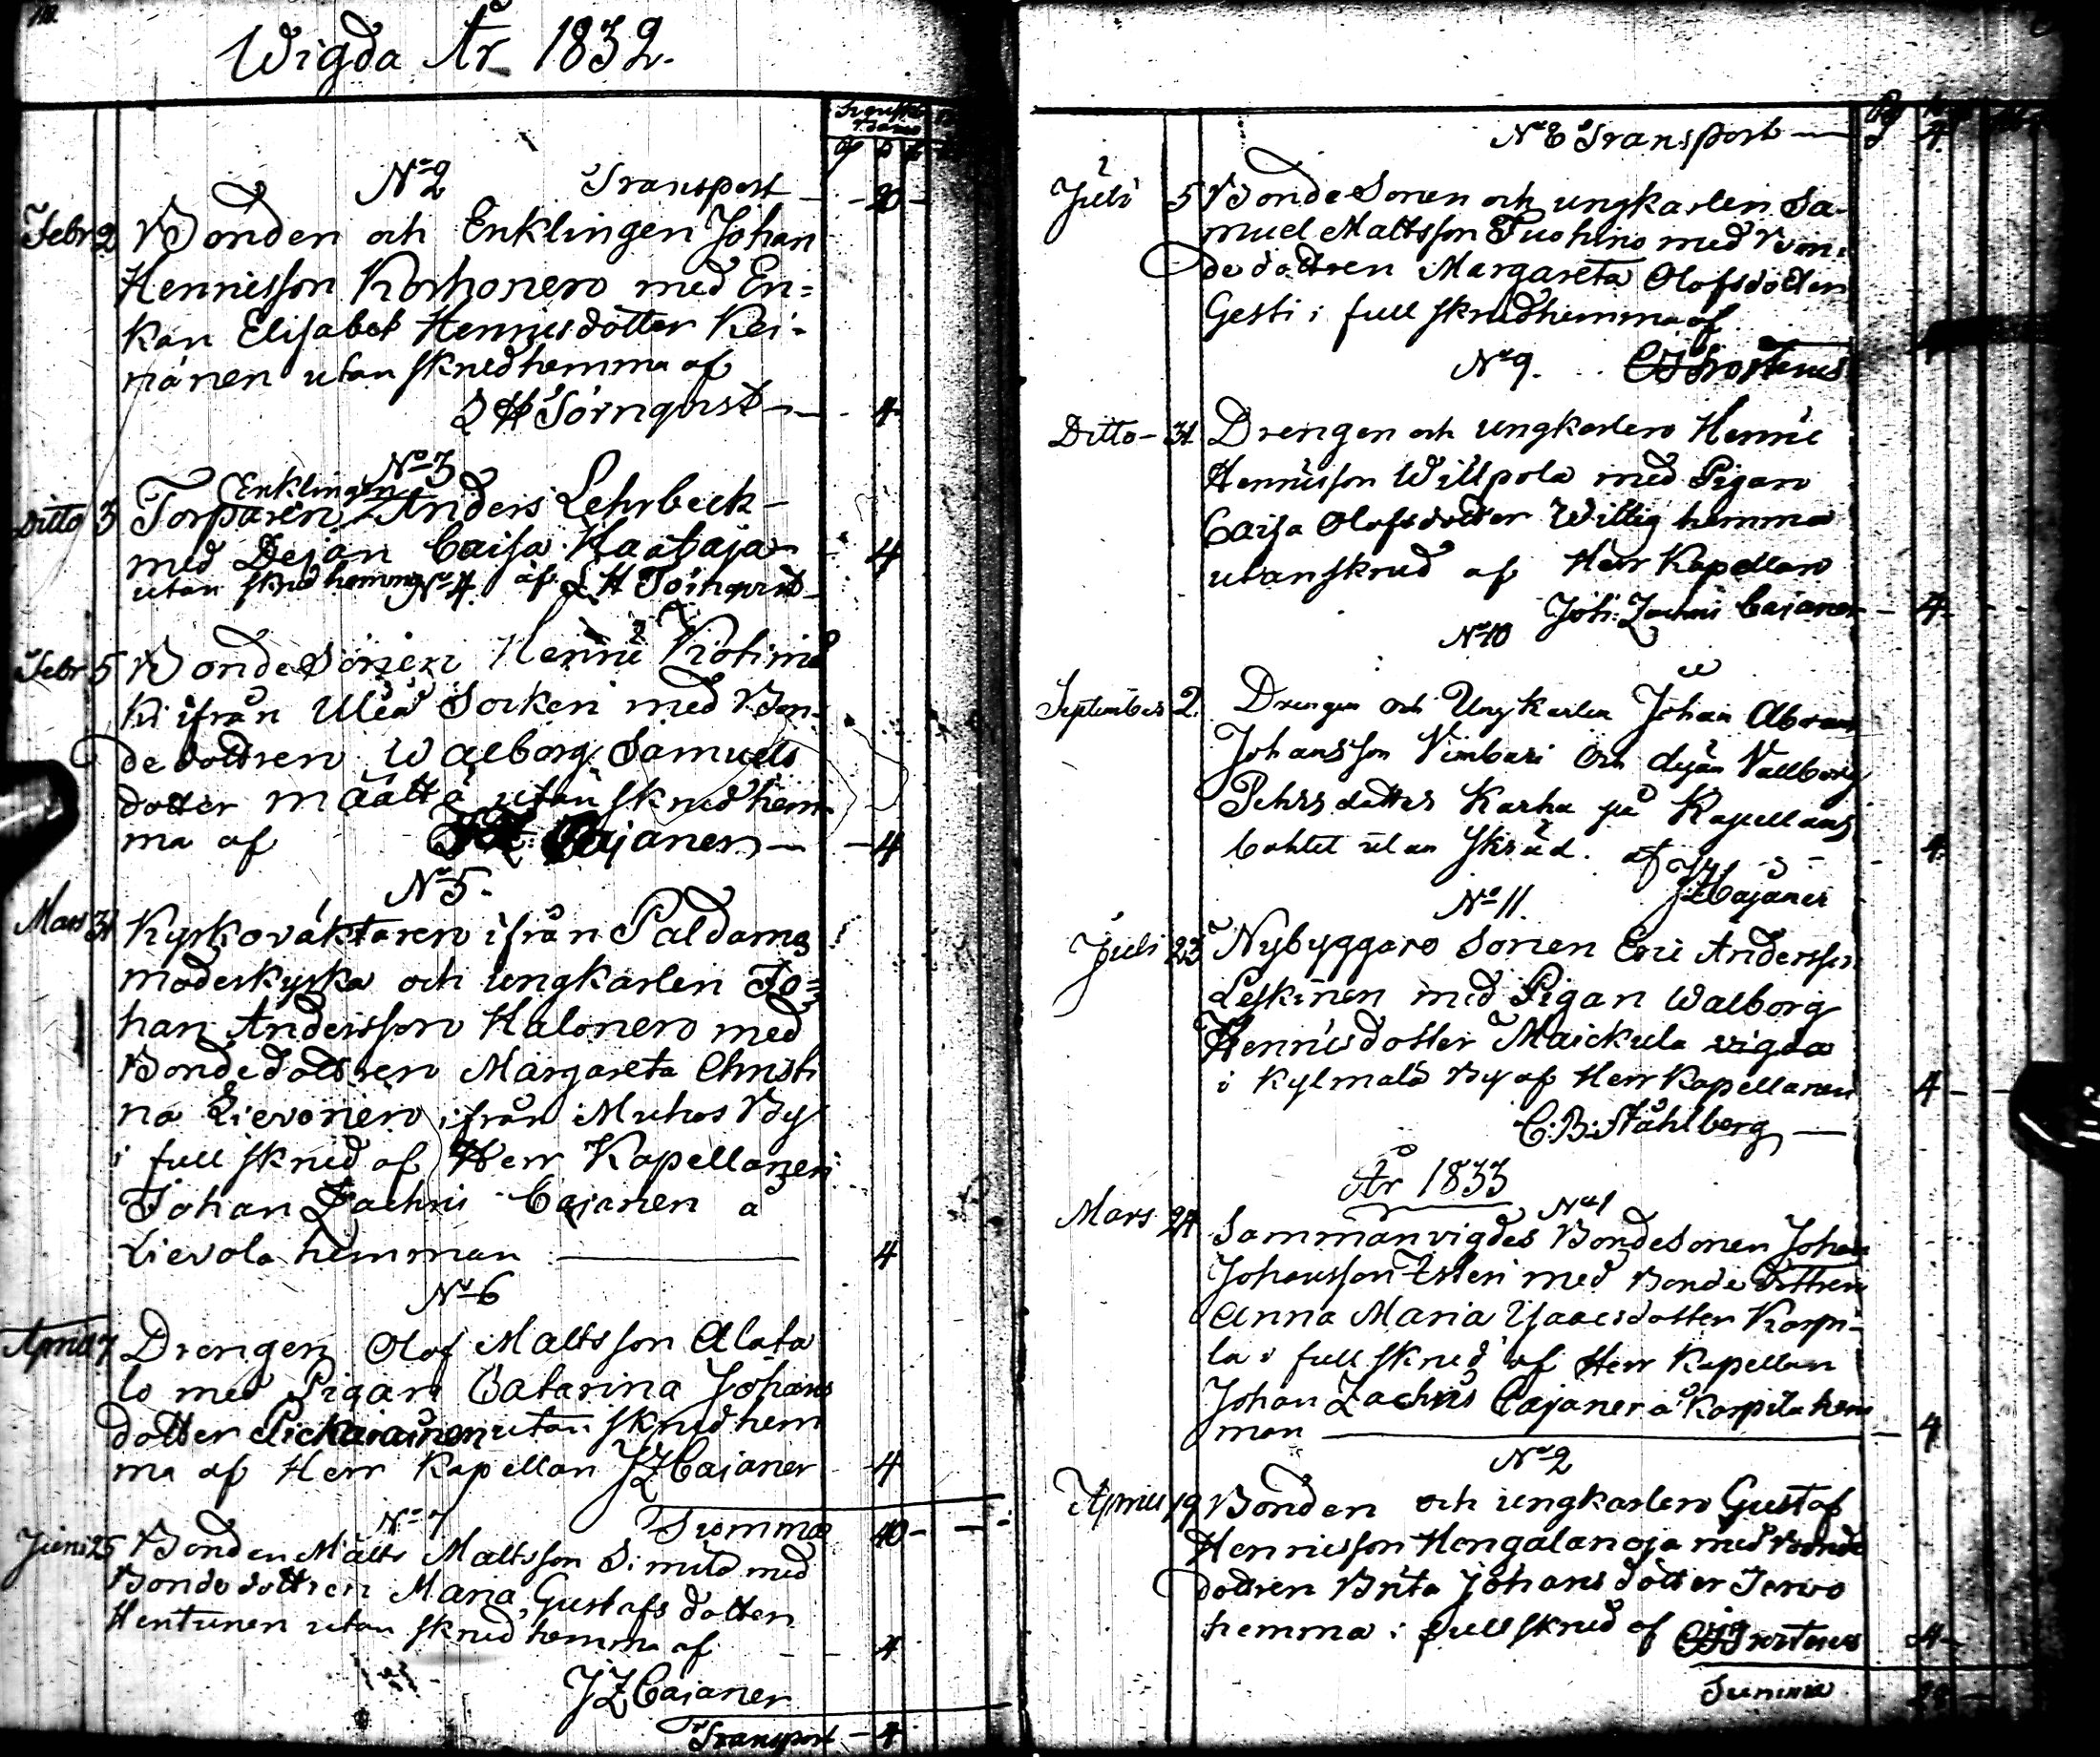 Wigda År 1832.
Svenska Banco
No 2 Transport - 20 -
Febr 2 Bonden och Enklingen Johan
Henricsson Korhonen med En=
kan Elisabet Henricsdotter Kei=
nänen utan skrud hemma af
L H Törnqvist - 4
No 3
Enklingen
Ditto 3 Torparen Anders Lehrbeck
med Dejan Caisa Haataja 4
utan skrud hemma af L H Törnqvist
No 4.
Febr 5 BondeSonen Henric Kiohimä
ki ifrån Uleå Socken med Bon=
dedottren Walborg Samuels
dotter Määttä utan skrud hem
ma af Cajaner - 4
No 5.
Mars 31 Kyrkovaktaren ifrån Paldamo
moderkyrka och ungkarlen Jo=
han Andersson Halonen med
Bondedottren Margareta Christi
na Lievonen ifrån Muhos By
i full skrud af Herr Kapellanen
Johan Zachris Cajanen å
Lievola hemman 4
No 6
April 7 Drengen Olof Mattsson Alata
lo med Pigan Catarina Johans
dotter utan skrud hem
ma af Herr Kapellan J Z Cajaner 4
Summa 40 -
No 7
Juni 25 Bonden Matts Mattsson Similä med
Bondedottren Maria Gustafsdotter
Hentunen utan skrud hemma af 4
J Z Cajaner
Transport - 4
No 8 Transport - 4
Juli 5 BondeSonen och ungkarlen Sa=
muel Mattsson Tuohino med Bon=
dedottren Margareta Olofsdotter
Gesti i full skrud hemma af
No 9.
Ditto - 31 Drengen och ungkarlen Henric
Henricsson Willpola med Pigan
Caisa Olofsdotter Willig hemma
utan skrud af Herr Kapellan
Joh: Zachris Cajaner - 4
No 10
September 2. Drengen och Ungkarlen Johan Abram
Johansson Vimbari och dejan Vallborg
Pehrsdotter Karhu på Kapellans
bohlet utan skrud. af 4
J Z Cajaner
No 11.
Juli 23 Nybyggare Sonen Eric Andersson
Leskinen med Pigan Walborg
Henricsdotter Maickula vigda
i Kylmälä By af Herr Kapellanen 4 -
C: B: Ståhlberg
År 1833
No 1
Mars 24 Sammanvigdes BondeSonen Johan
Johansson med Bonde dottren
Anna Maria Isaacsdotter Karpi=
la i full skrud af Herr Kapellan
Johan Zachris Cajaner å Karpila hem
man 4
No 2
April 19 Bonden och ungkarlen Gustaf
Henricsson Hongalanoja med Bonde
dottren Brita Johansdotter Jervo
hemma i full skrud af 4 -
Summa